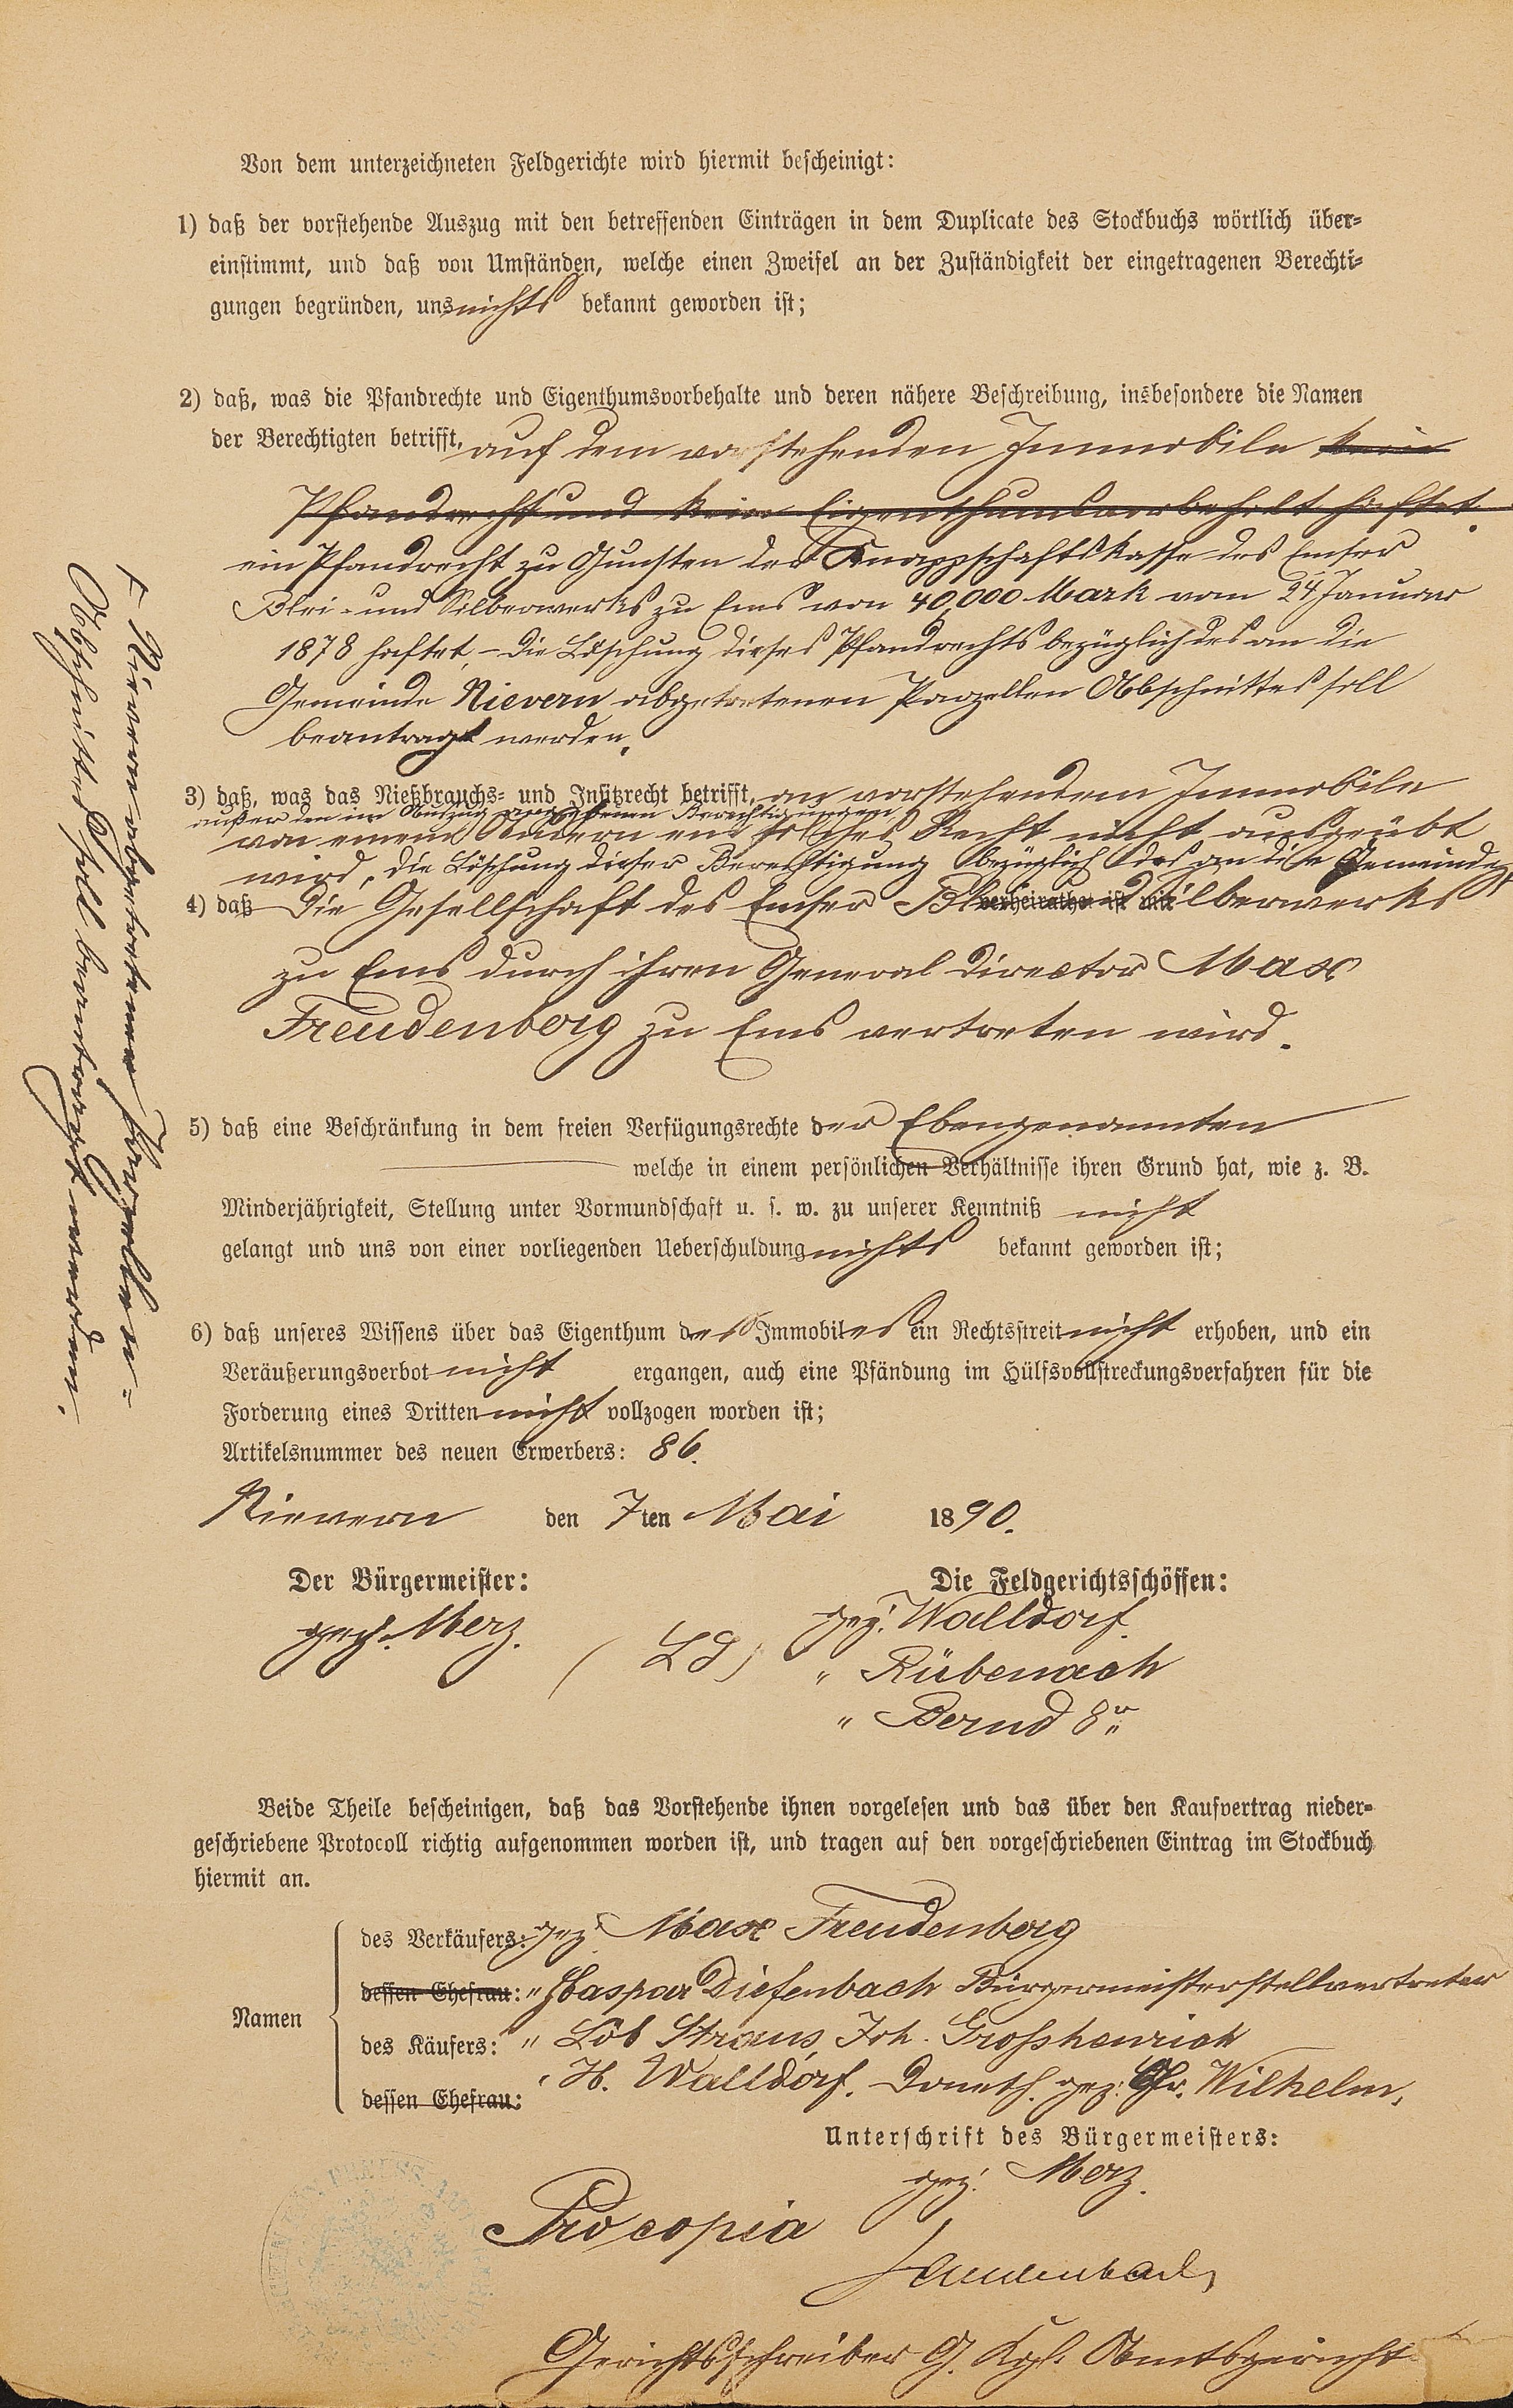 Von dem unterzeichneten Feldgerichte wird hiermit bescheinigt:
1) daß der vorstehende Auszug mit den betreffenden Einträgen in dem Duplicate des Stockbuchs wörtlich über-
einstimmt, und daß von Umständen, welche einen Zweifel an der Zuständigkeit der eingetragenen Berechti-
gungen begründen, uns nichts bekannt geworden ist;
2) daß, was die Pfandrechte und Eigenthumsvorbehalte und deren nähere Beschreibung, insbesondere die Namen
der Berechtigten betrifft, auf dem vorstehenden Immobile kein
Pfandrecht und kein Eigenthumsvorbehalt haftet.
ein Pfandrecht zu Gunsten der Knappschaftskasse des Emser
Blei- und Silberwerks zu Ems von 40,000 Mark vom 24 Januar
1878 haftet, - die Löschung dieses Pfandrechts bezüglich des an die
Gemeinde Nievern abgetretenen Parzellen Abschnittes soll
beantragt werden.
3) daß, was das Nießbrauchs- und Insitzrecht betrifft, an vorstehendem Immobile
außer den im Auszug angegebenen Berechtigungen
von einem Andern ein solches Recht nicht ausgeübt
wird, die Löschung dieser Berechtigung bezüglich des an die Gemeinde
4) daß die Gesellschaft des Emser Blei und Silberwerks verheirathet ist mit
zu Ems durch ihren General Director Max
Freudenberg zu Ems vertreten wird.
5) daß eine Beschränkung in dem freien Verfügungsrechte der Ebengenannten
welche in einem persönlichen Verhältnisse ihren Grund hat, wie z. B.
Minderjährigkeit, Stellung unter Vormundschaft u. s. w. zu unserer Kenntniß nicht
gelangt und uns von einer vorliegenden Ueberschuldung nichts bekannt geworden ist;
6) daß unseres Wissens über das Eigenthum des Immobiles ein Rechtsstreit nicht erhoben, und ein
Veräußerungsverbot nicht ergangen, auch eine Pfändung im Hülfsvollstreckungsverfahren für die
Forderung eines Dritten nicht vollzogen worden ist;
Artikelsnummer des neuen Erwerbers: 86.
Nievern den 7ten Mai 1890.
Der Bürgermeister: Die Feldgerichtsschöffen:
gez. Merz. (LS) gez. Walldorf.
" Rübenach
" Bernd
Beide Theile bescheinigen, daß das Vorstehende ihnen vorgelesen und das über den Kaufvertrag nieder-
geschriebene Protocoll richtig aufgenommen worden ist, und tragen auf den vorgeschriebenen Eintrag im Stockbuch
hiermit an.
Namen
des Verkäufers: gez. Max Freudenberg
dessen Ehefrau: " Caspar Diefenbach Bürgermeisterstellvertreter
des Käufers: " Löb Straus, Joh. Großhenrich
dessen Ehefrau: " H. Walldorf. gez: Chr. Wilhelm.
Unterschrift des Bürgermeisters:
gez. Merz.
Pro copia
Gerichtsschreiber G. Kgl. Amtsgericht
Nievern abgetretenen Parzellen-
Abschnittes soll beantragt werden.